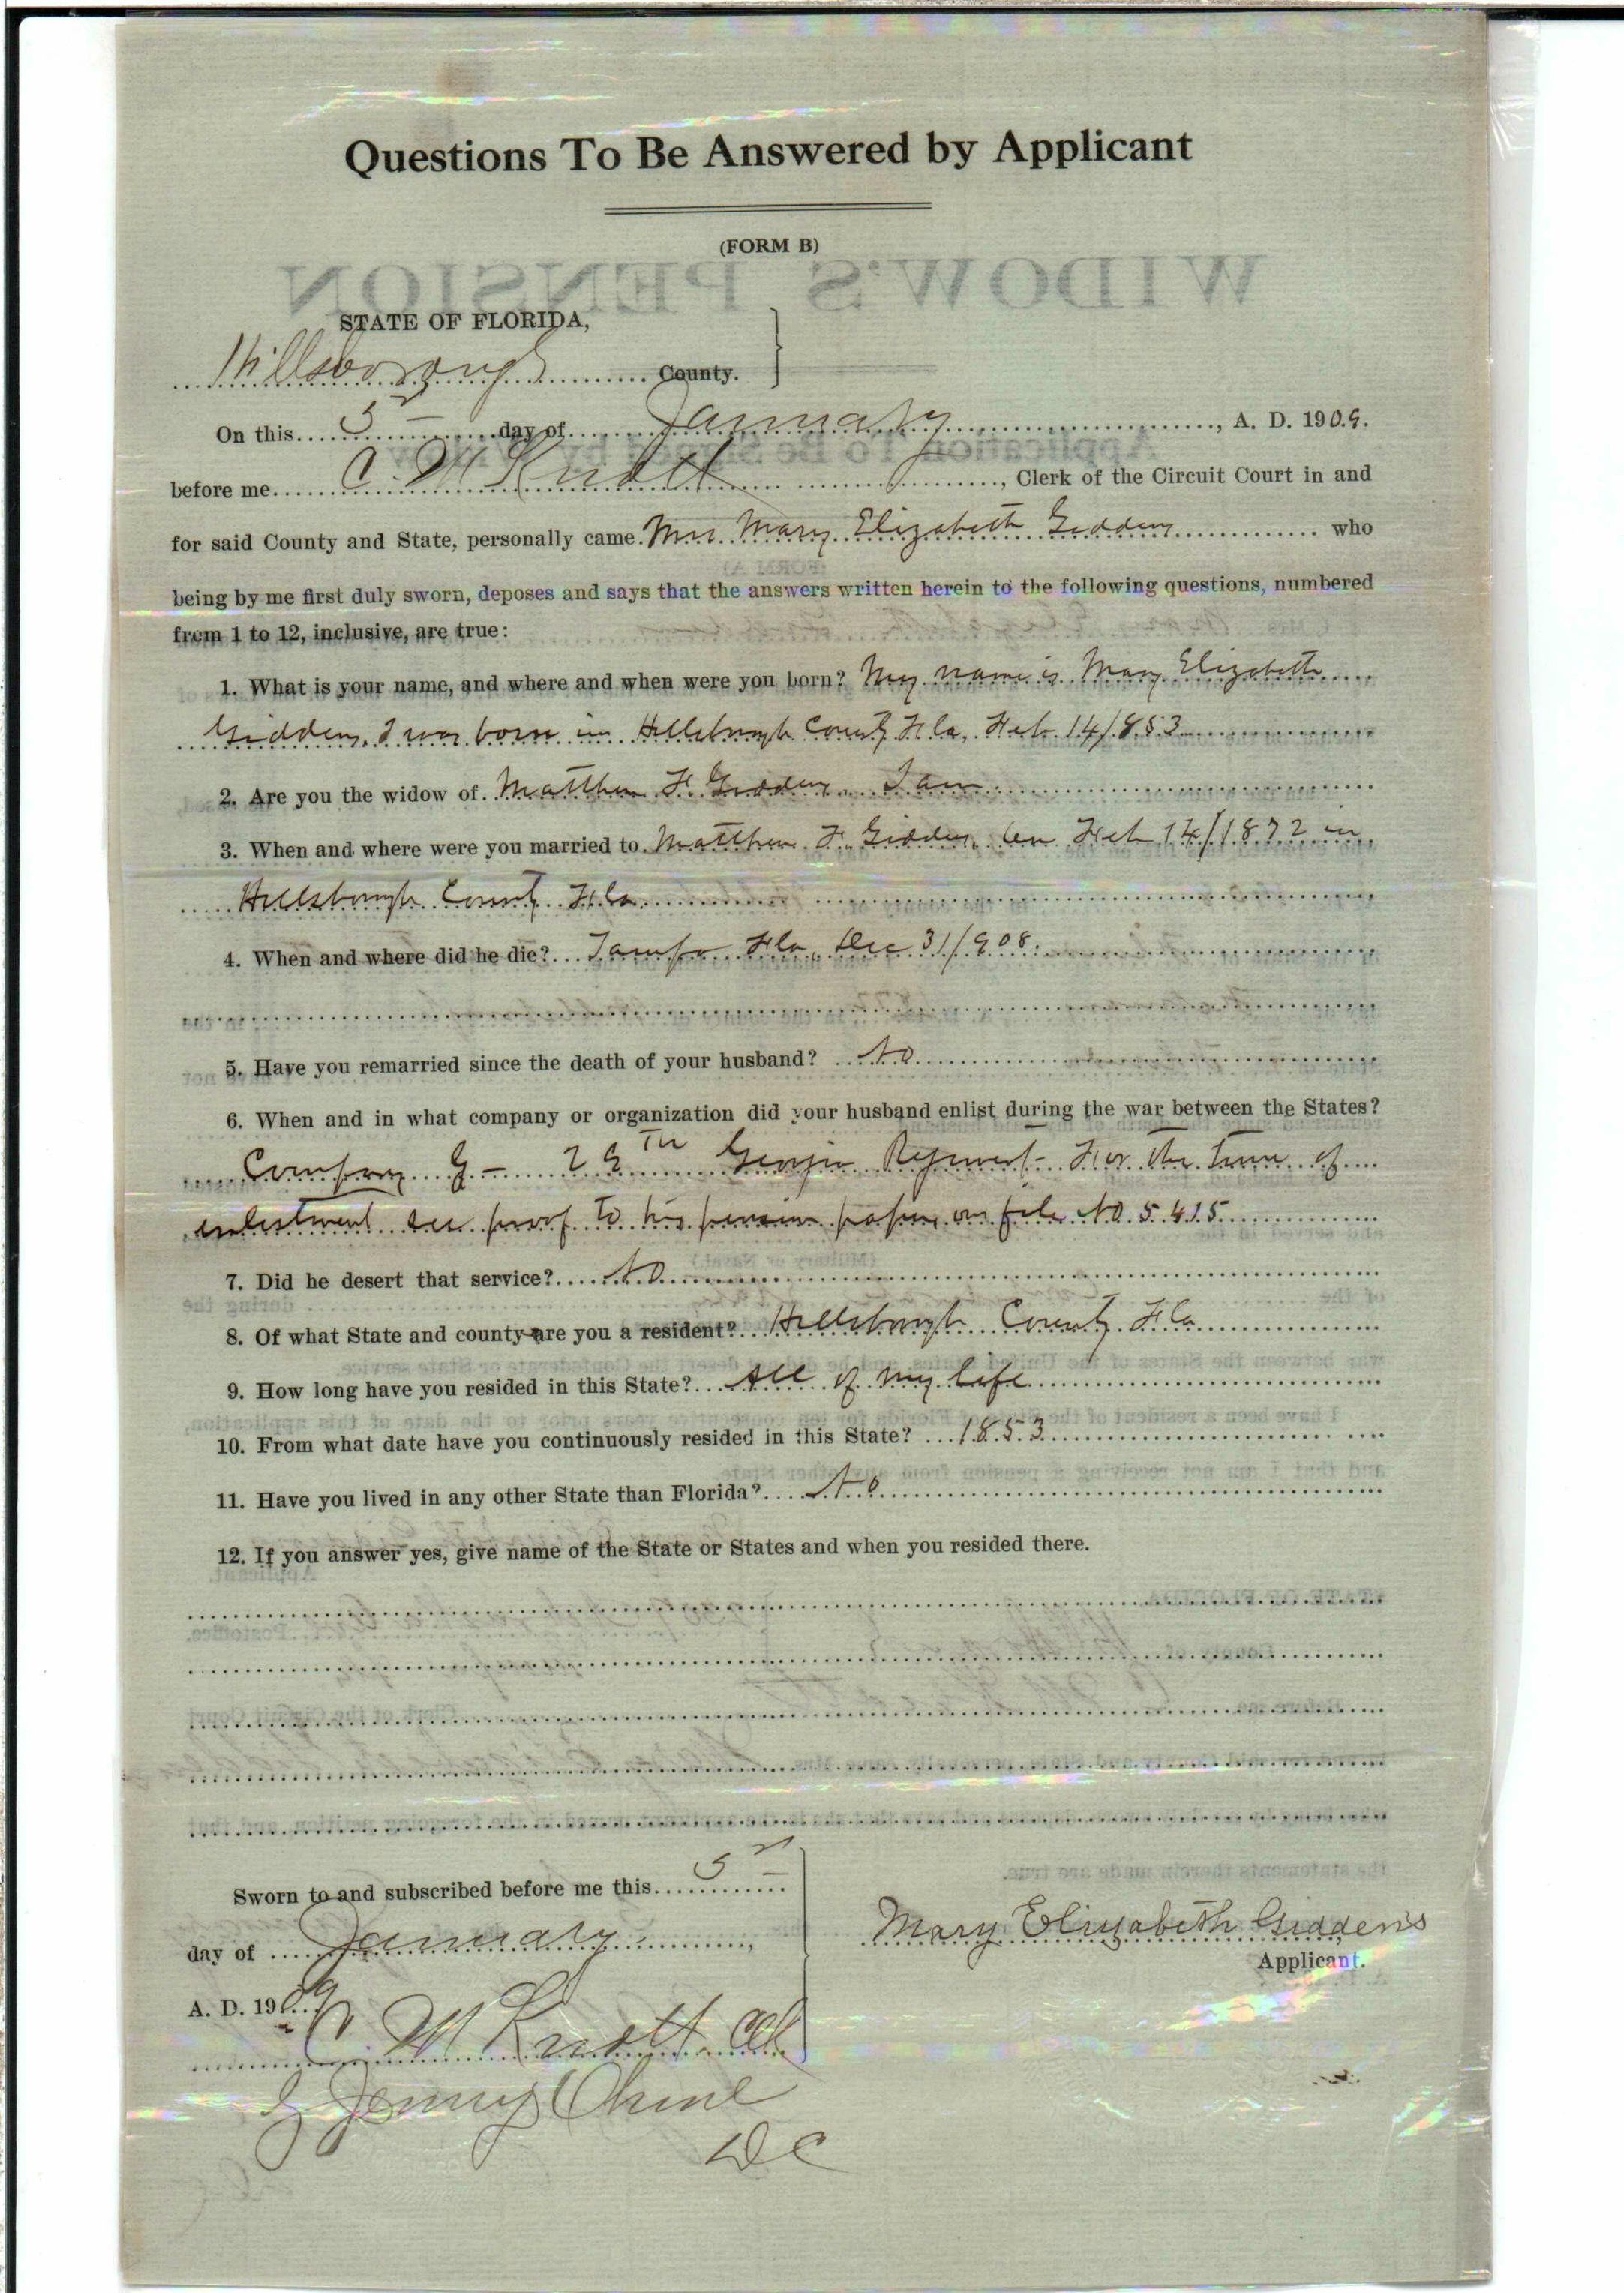 Questions To Be Answered by Applicant
(FORM B)
STATE OF FLORIDA,
Hillsborough County.
On this 5th day of January, A. D. 1909.
before me C. M Knott, Clerk of the Circuit Court in and
for said County and State, personally came Mrs. Mary Elizabeth Giddens who
being by me first duly sworn, deposes and says that the answers written herein to the following questions, numbered
from 1 to 12, inclusive, are true:
1. What is your name, and where and when were you born? My name is Mary Elizabeth
Giddens. I was born in Hillsborough County Fla, Feb 14/1853
2. Are you the widow of Matthew F. Giddens. I am
3. When and where were you married to Matthew F. Giddens. On Feb 14/1872 in
Hillsborough County Fla
4. When and where did he die? Tampa Fla, Dec 31/908.
5. Have you remarried since the death of your husband? No
6. When and in what company or organization did your husband enlist during the war between the States?
Company G - 29th Georgia Regiment - For the time of
enlistment see proof to his pension papers on file No. 5415
7. Did he desert that service? No
8. Of what State and county are you a resident? Hillsborough County Fla
9. How long have you resided in this State? All of my life
10. From what date have you continuously resided in this State? 1853
11. Have you lived in any other State than Florida? No
12. If you answer yes, give name of the State or States and when you resided there.
Sworn to and subscribed before me this 5th
day of January,
A. D. 1909
C. M Knott Clk
Mary Elizabeth Giddens
Applicant.
DC